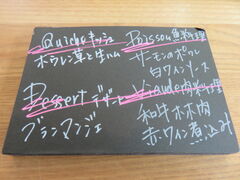 Quicheキッシュ
ホウレン草と生ハム
Poisson 魚料理
サーモンのポワレ
白ワインソース
Dessert デザート
ブランマンジェ
Viande肉料理
和牛ホホ肉
赤ワイン煮込み